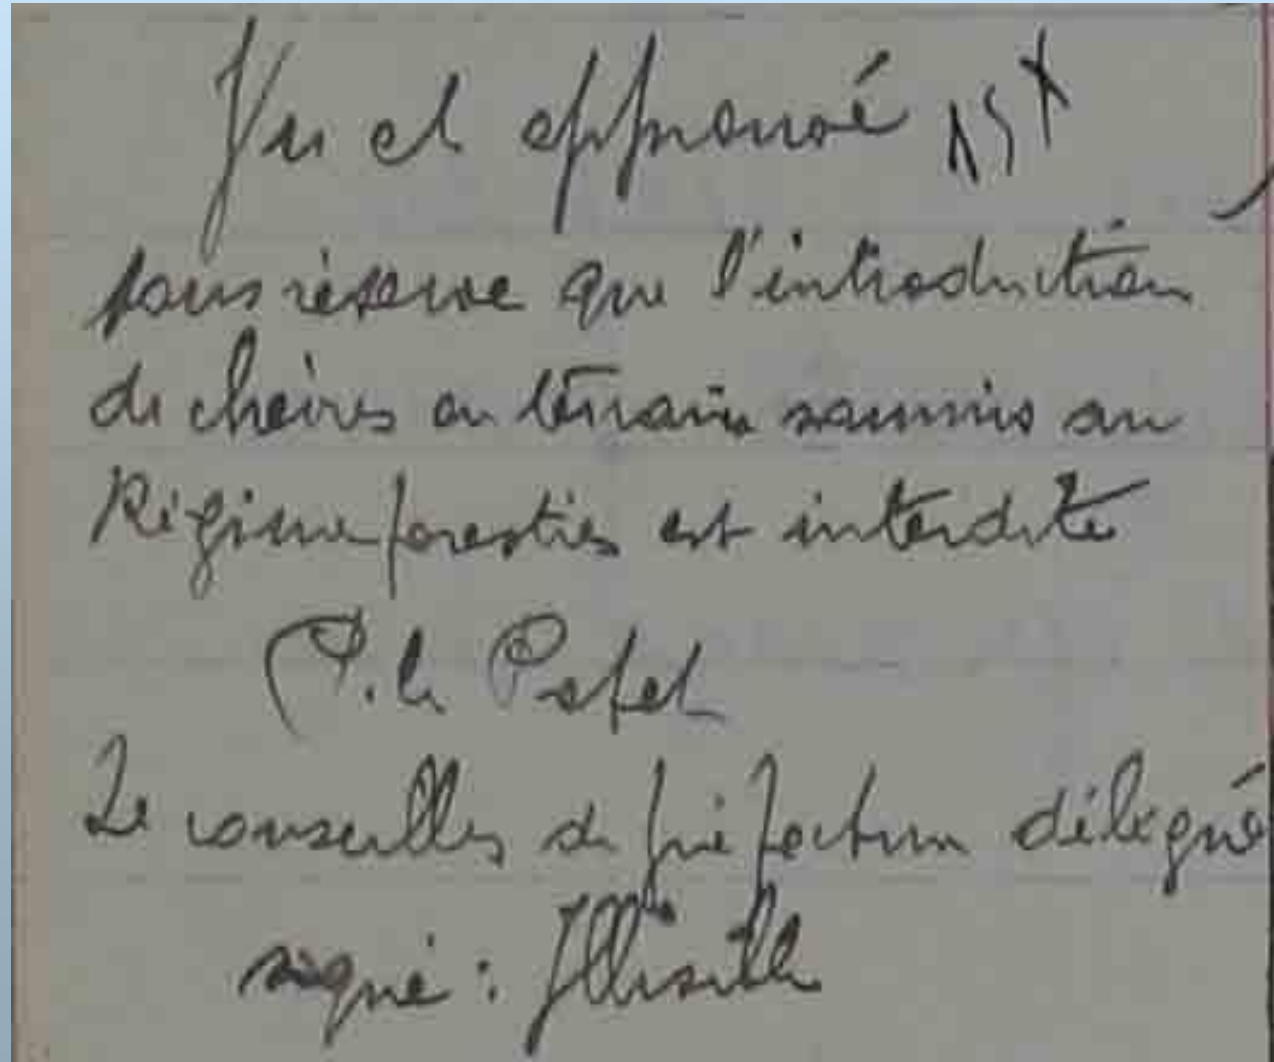 Vu et approuvé
sous réserve que l'introduction
de chèvres en terrain soumis au
Régime forestier est interdite
P. le Préfet
Le conseiller de préfecture délégué
signé :